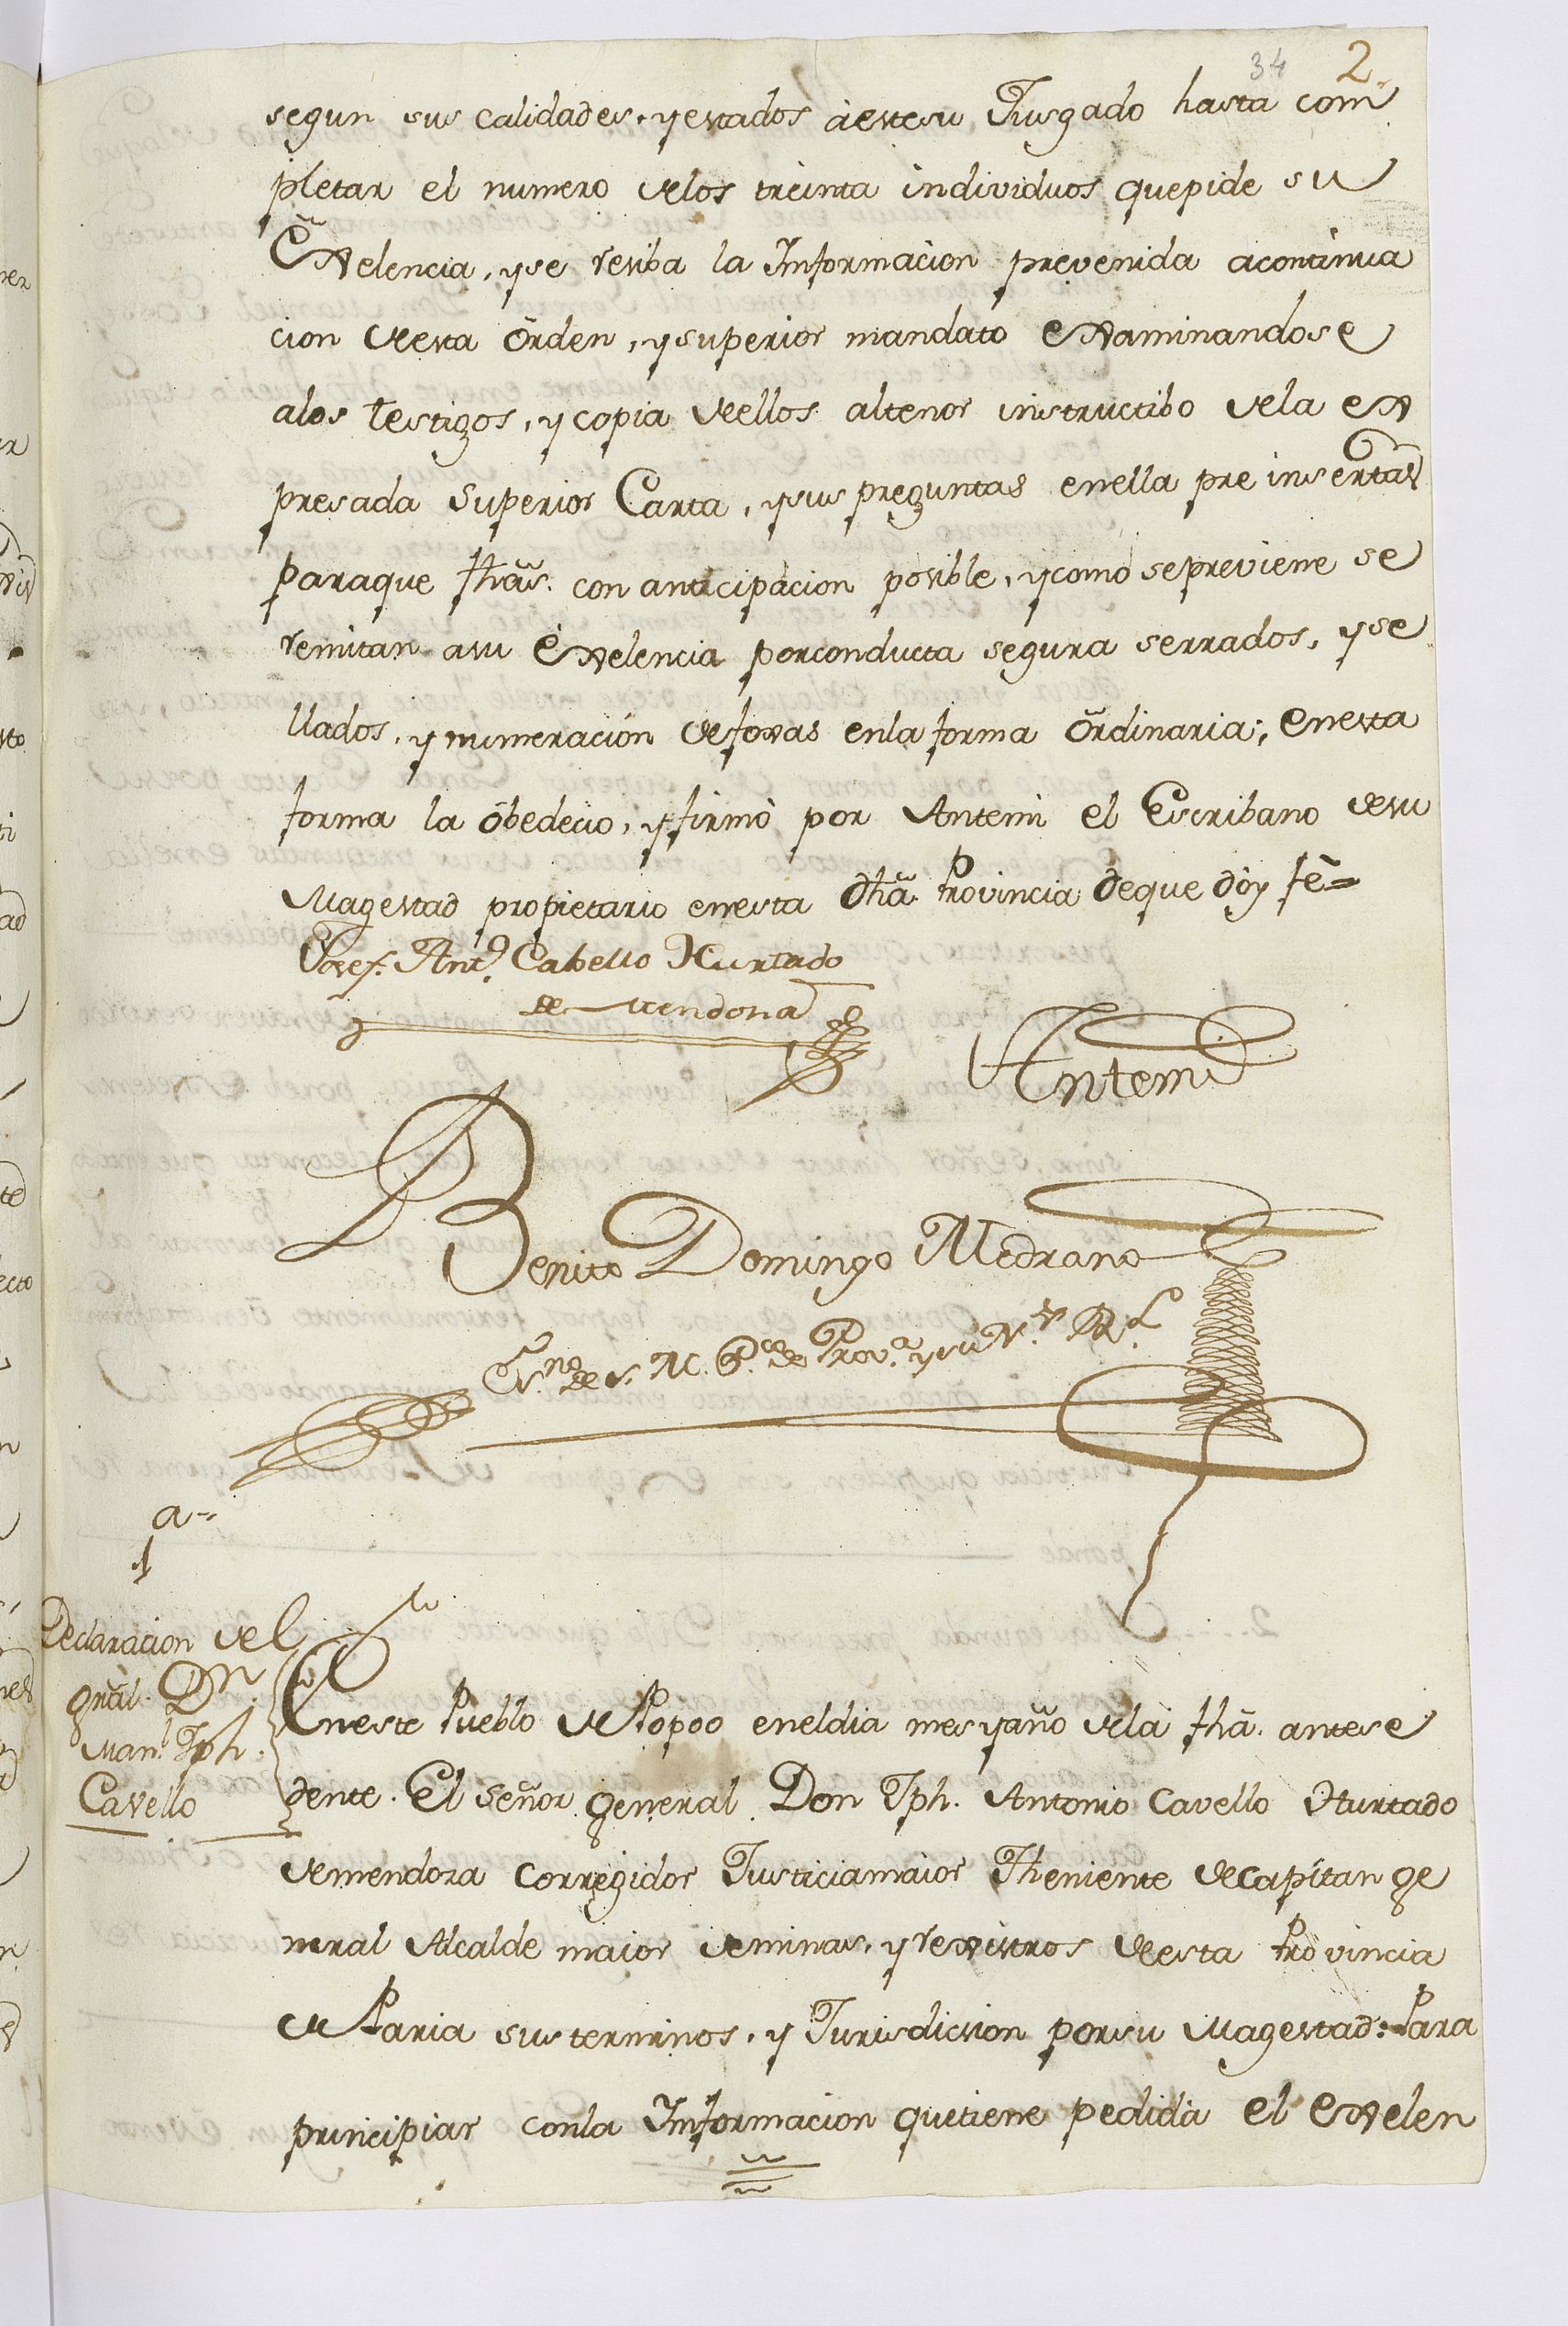 34 2.
segun sus calidades, y estados à estesu Jusgado hasta com
pletar el numero delos treinta individuos quepide su
Exelencia, yse resiba la Informacion prevenida acontinua
cion deesta órden, y superior mandato examinandose
alos testigos, y copia deellos altenor instructibo dela ex
presada superior Carta, ysus preguntas enella pre insertas
paraque fhãs. con anticipacion posible, ycomo sepreviene se
remitan asu Exelencia porconducta segura serrados, y se
llados, y numeración defoxas enla forma órdinaria; enesta
forma la óbedecio, yfirmò por Antemi el Escribano desu
Magestad propietario enesta dhã. Provincia deque dóy feè=
Josef. Antº. Cabello Hurtado
de Mendoza
Antemi
Benito Domingo Medrano
Esno. de S. M. Pco. de Prova. y su Rl.
a..
1
Declaracion del
gnãl. Dn.
Manl. Jph.
Cavello
Eneste Pueblo de Popoo eneldia mes yaño dela fhã. antese
dente. El señor general Don Jph. Antonio Cavello Hurtado
demendoza Corregidor Justiciamaior Theniente decapitan ge
neral Alcalde maior deminas, y rexistros deesta Provincia
de Paria sus terminos, y Jurisdicsion porsu Magestad: Para
principiar conla Informacion quetiene pedida el exelen